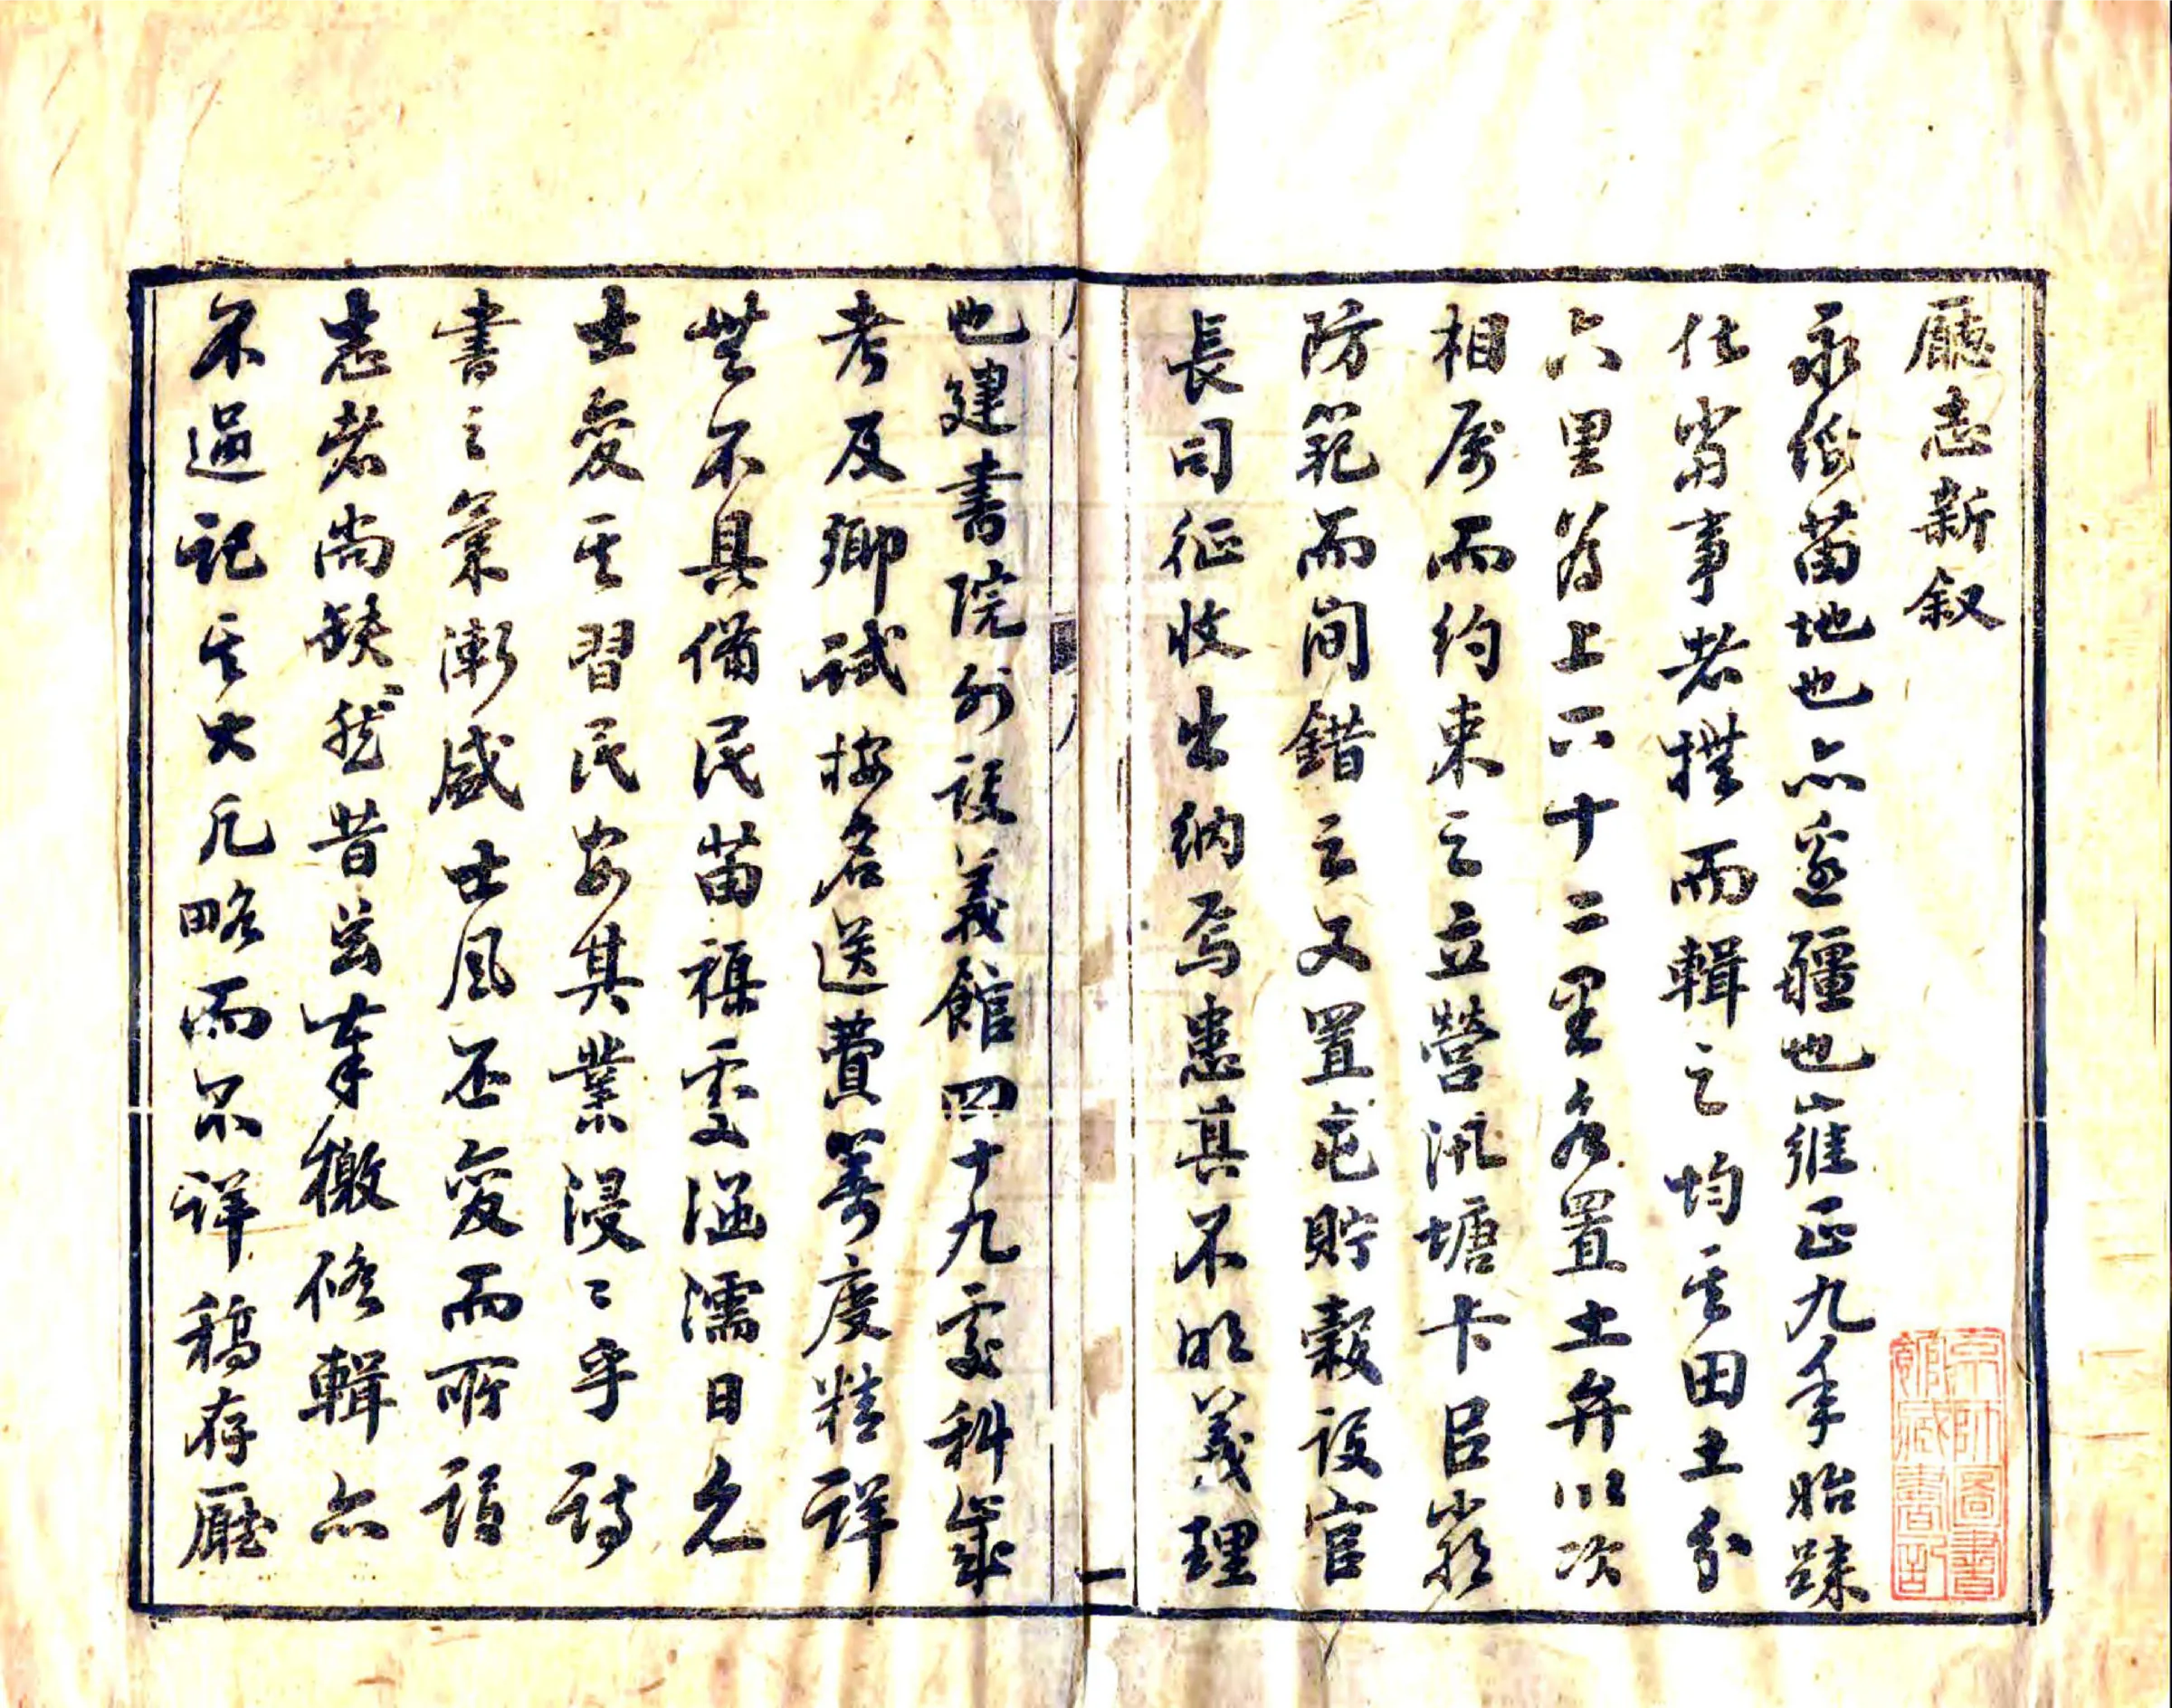 廳志新叙
永綏苗地也亦邊疆也雍正九年始隸
仕當事者撰而輯之均其田土分
六里爲上六十二里各置土弁以次
相屬而約束之立營汛塘卡臣嚴
防範而間錯之又置屯貯穀設官
長司征收出納焉患其不明義理
也建書院外設義館四十九處科歲
考及鄉試按名送費籌度精詳
無不具備民苗襁處涵濡日久
士變其習民安其業浸〻乎詩
書之氣漸盛士風丕變而所謂
志者尚缺然昔玆奉檄修輯亦
不過記其大凡略而不詳稿存廳
京師圖書
館藏書記
一